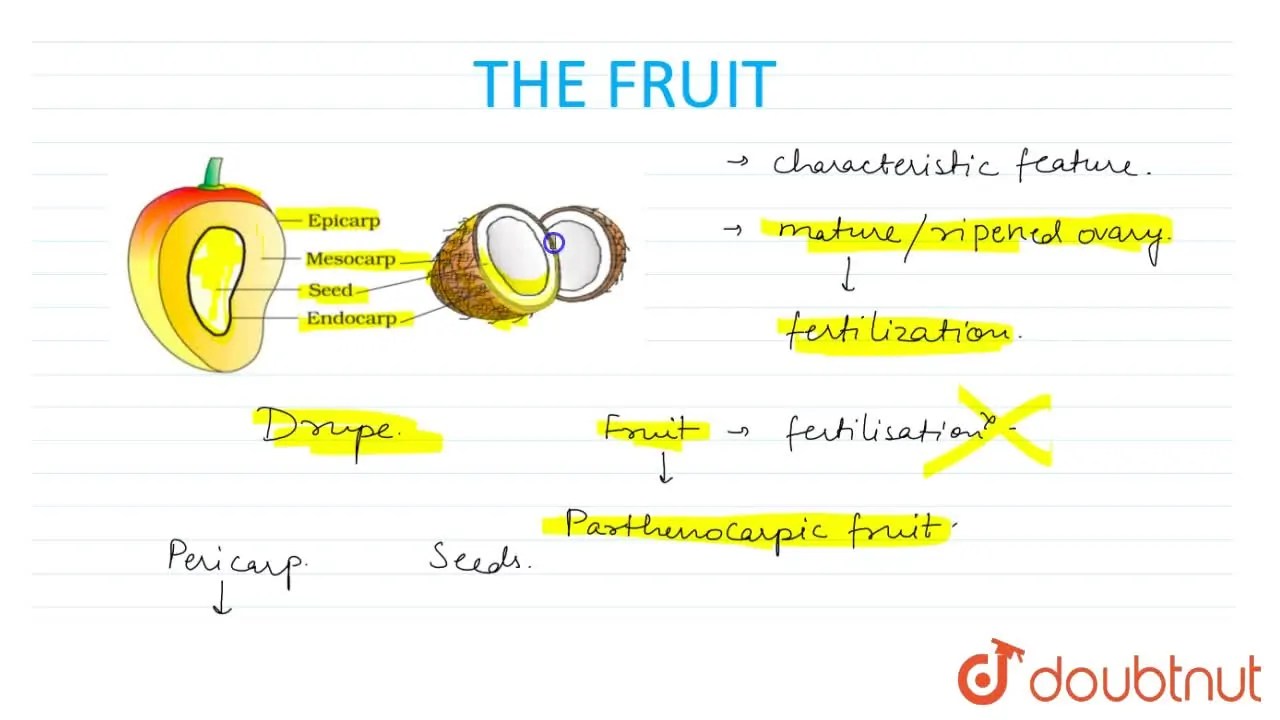 THE FRUIT
→ characteristic feature.
Epicarp
→ mature/ripened ovary.
Mesocarp
Seed
Endocarp
↓
fertilization.
Drupe.
Fruit → fertilisation x -
↓
Parthenocarpic fruit.
Pericarp.
Seeds.
↓
doubtnut